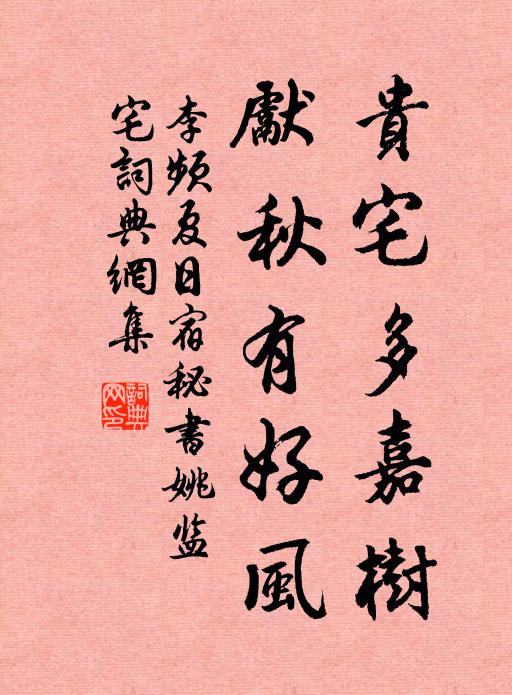 貴宅多嘉樹
獻秋有好風
李頻夏日宿秘書姚监
宅詞典網集
詞典网印